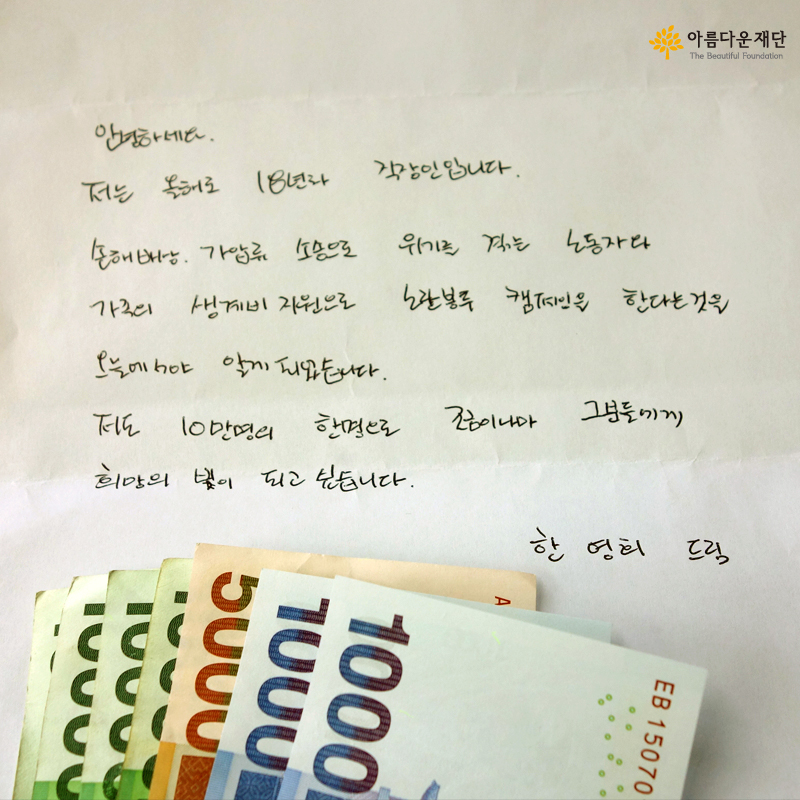 아름다운재단
The Beautiful Foundation
안녕하세요.
저는 올해로 18년차 직장인입니다.
손해배상. 가압류 소송으로 위기를 겪는 노동자와
가족의 생계비 지원으로 노란봉투 캠페인을 한다는것을
오늘에서야 알게 되었습니다.
저도 10만명의 한명으로 조금이나마 그분들에게
희망의 빛이 되고 싶습니다.
한 영희 드림
5000
1000
1000
A
EB15070